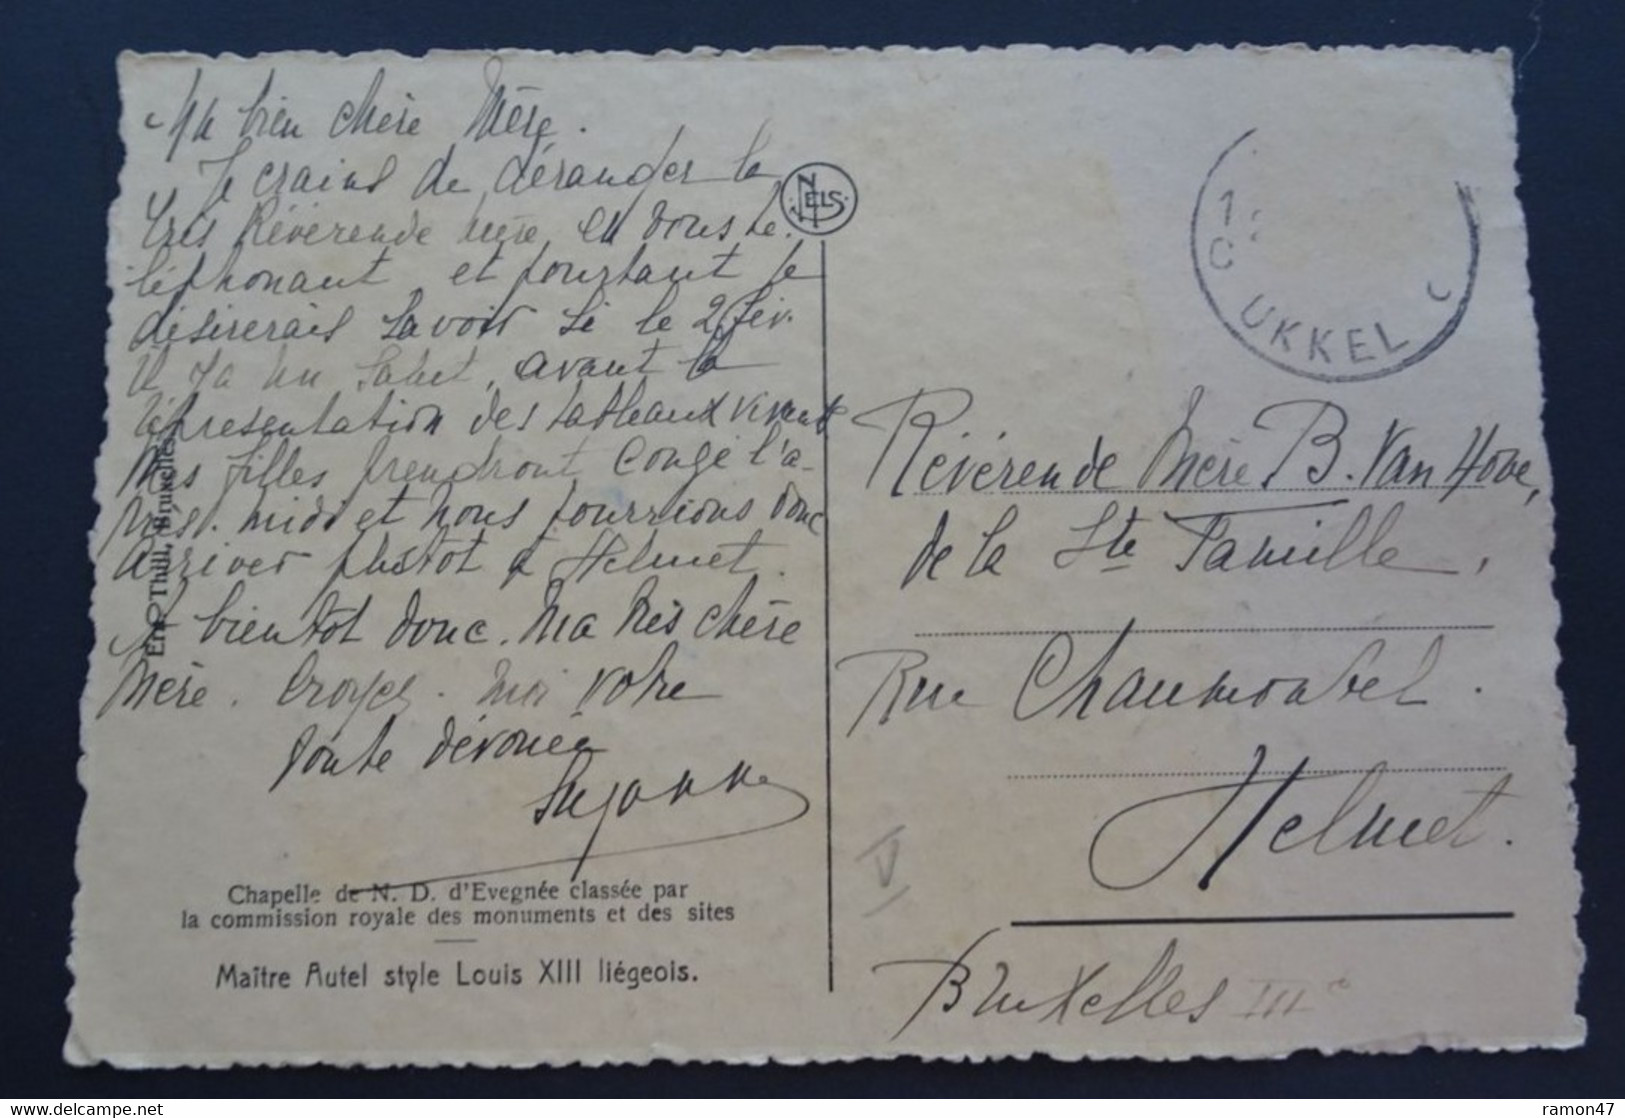 Ma bien chère Mère.
Je crains de déranger la
très Révérende Mère en vous té-
léphonant et pourtant je
désirerais savoir si le 2 fév.
il y a un Salut, avant la
représentation des tableaux vivants
Mes filles prendront congé l'a-
près-midi et nous pourrions donc
arriver plustôt à Helmet.
A bientôt donc. Ma très chère
Mère. Croyez-moi votre
toute dévouée
Suzanne
Ern. Thill, Bruxelles.
Chapelle de N. D. d'Evegnée classée par
la commission royale des monuments et des sites
Maître Autel style Louis XIII liégeois.
NELS
1
C
UKKEL
Révérende Mère B. Van Hove,
de la Ste Famille,
Rue Chaumontel.
Helmet.
Bruxelles III e
V
ramon47